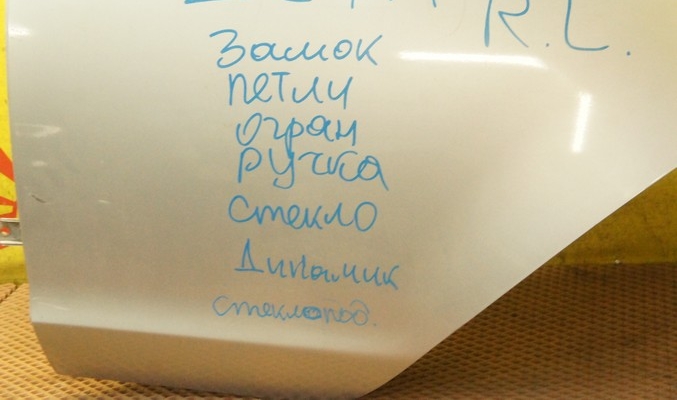 R.L.
Замок
петли
огран
ручка
стекло
Динамик
стеклопод.